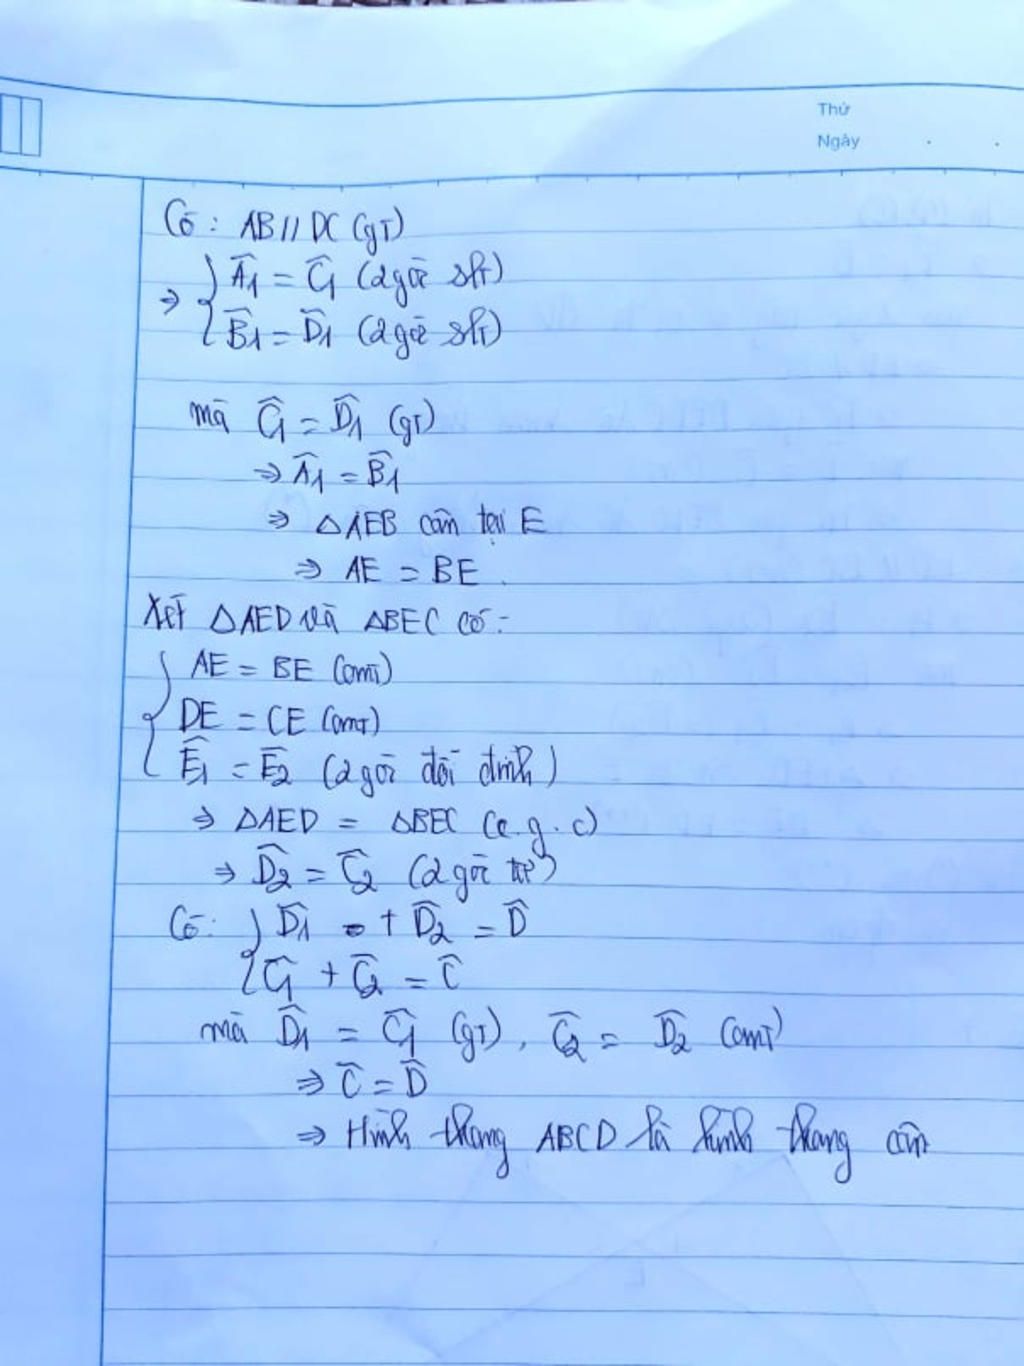 Thứ
Ngày
Có: AB // DC (gt)
⇒ { Â1 = Ĉ1 (2 góc slt)
B̂1 = D̂1 (2 góc slt)
mà Ĉ1 = D̂1 (gt)
⇒ Â1 = B̂1
⇒ △AEB cân tại E
⇒ AE = BE.
Xét △AED và △BEC có:
{ AE = BE (cmt)
DE = CE (cmt)
Ê1 = Ê2 (2 góc đối đỉnh)
⇒ △AED = △BEC (c.g.c)
⇒ D̂2 = Ĉ2 (2 góc tứ)
Có: { D̂1 + D̂2 = D̂
Ĉ1 + Ĉ2 = Ĉ
mà D̂1 = Ĉ1 (gt), Ĉ2 = D̂2 (cmt)
⇒ Ĉ = D̂
⇒ Hình thang ABCD là hình thang cân